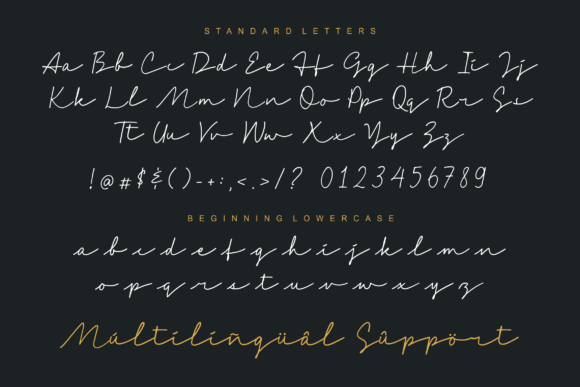 STANDARD LETTERS
Aa Bb Cc Dd Ee Ff Gg Hh Ii Jj
Kk Ll Mm Nn Oo Pp Qq Rr Ss
Tt Uu Vv Ww Xx Yy Zz
!@#$&()-+:,<.>/? 0123456789
BEGINNING LOWERCASE
a b c d e f g h i j k l m n
o p q r s t u v w x y z
Múltílíñgüâl Sûppört